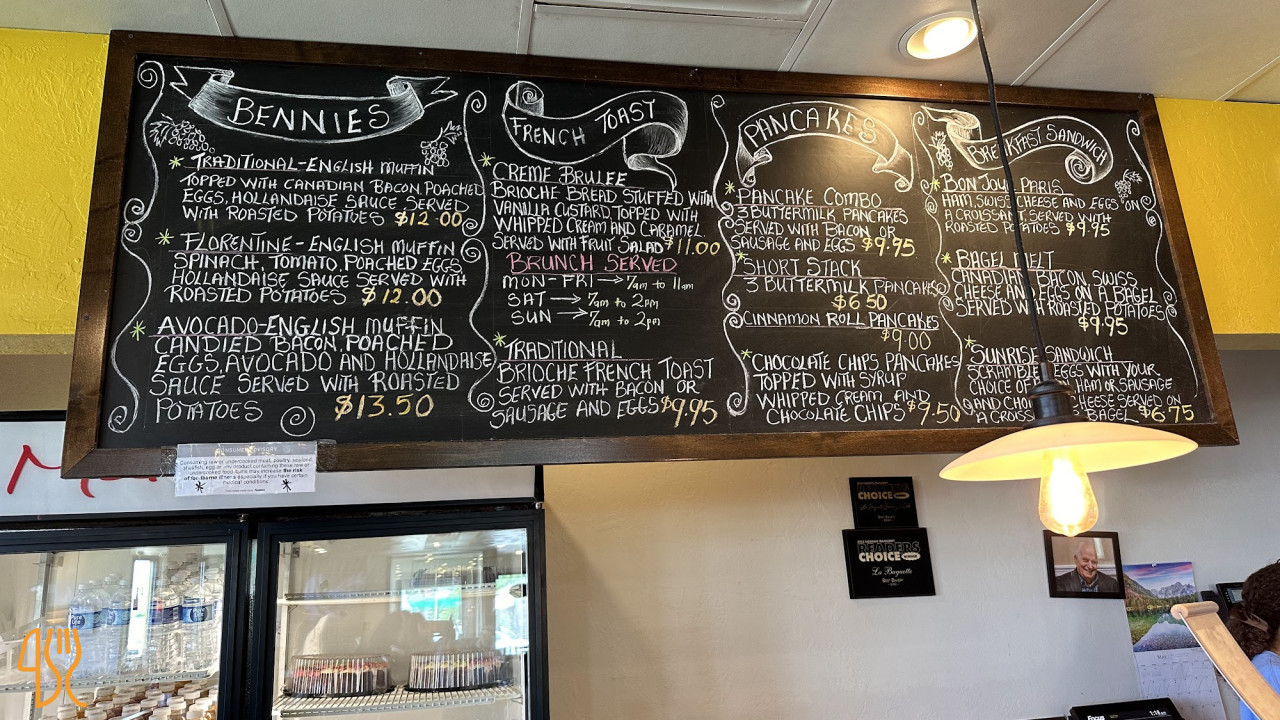 BENNIES
TRADITIONAL-ENGLISH MUFFIN
TOPPED WITH CANADIAN BACON, POACHED
EGGS, HOLLANDAISE SAUCE SERVED
WITH ROASTED POTATOES $12.00
FLORENTINE-ENGLISH MUFFIN
SPINACH, TOMATO, POACHED EGGS,
HOLLANDAISE SAUCE SERVED WITH
ROASTED POTATOES $12.00
AVOCADO-ENGLISH MUFFIN
CANDIED BACON, POACHED
EGGS, AVOCADO AND HOLLANDAISE
SAUCE SERVED WITH ROASTED
POTATOES $13.50
FRENCH TOAST
CREME BRULEE
BRIOCHE BREAD STUFFED WITH
VANILLA CUSTARD, TOPPED WITH
WHIPPED CREAM AND CARAMEL.
SERVED WITH FRUIT SALAD $11.00
BRUNCH SERVED
MON-FRI → 7am TO 11am
SAT → 7am TO 2pm
SUN → 7am TO 2pm
TRADITIONAL
BRIOCHE FRENCH TOAST
SERVED WITH BACON OR
SAUSAGE AND EGGS $9.95
PANCAKES
PANCAKE COMBO
3 BUTTERMILK PANCAKES
SERVED WITH BACON OR
SAUSAGE AND EGGS $9.95
SHORT STACK
3 BUTTERMILK PANCAKES
$6.50
CINNAMON ROLL PANCAKES
$9.00
CHOCOLATE CHIPS PANCAKES
TOPPED WITH SYRUP
WHIPPED CREAM AND
CHOCOLATE CHIPS $9.50
BREAKFAST SANDWICH
BON JOUR PARIS
HAM, SWISS CHEESE AND EGGS ON
A CROISSANT, SERVED WITH
ROASTED POTATOES $9.95
BAGEL MELT
CANADIAN BACON, SWISS
CHEESE AND EGGS ON A BAGEL
SERVED WITH ROASTED POTATOES
$9.95
SUNRISE SANDWICH
SCRAMBLE EGGS WITH YOUR
CHOICE OF HAM OR SAUSAGE
AND CHEESE SERVED ON
A BAGEL $6.75
CONSUMER ADVISORY
Consuming raw or undercooked meat, poultry, seafood,
shellfish, egg or any product containing these raw or
undercooked food items may increase the risk
of foodborne illness especially if you have certain
medical conditions
CHOICE
READERS
CHOICE
La Baguette
Pure Life
Focus